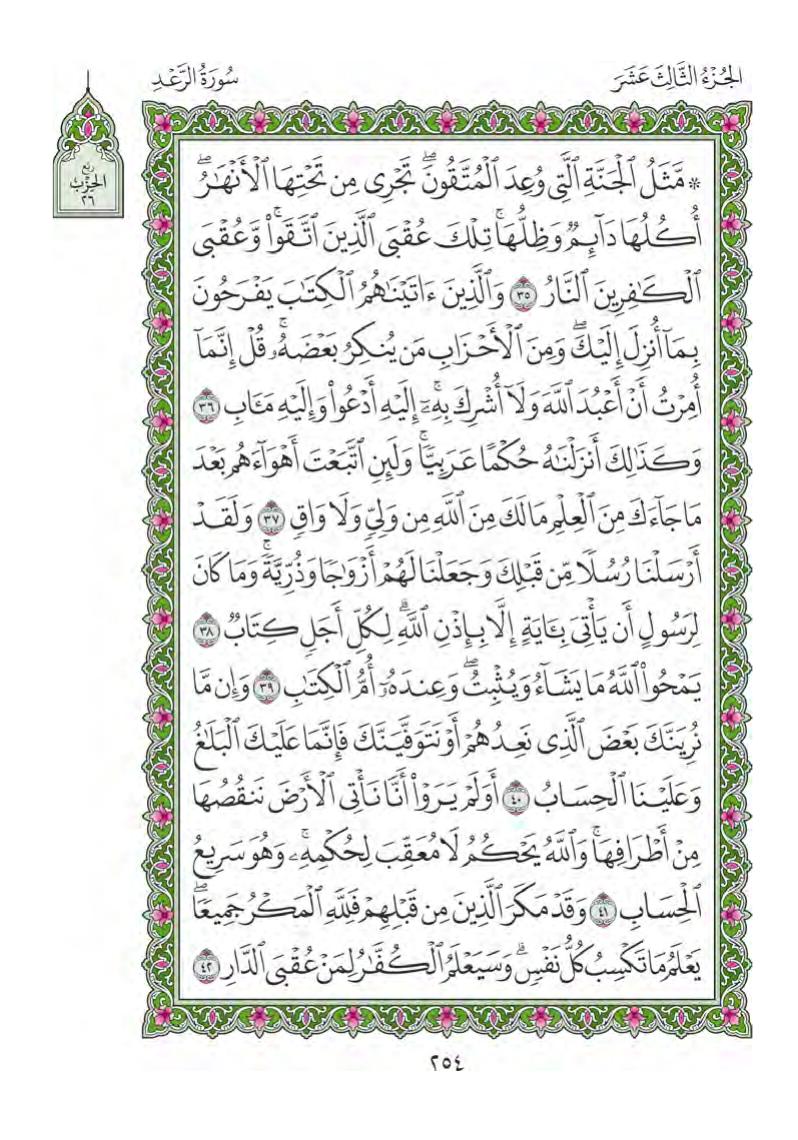 الجُزْءُ الثَّالِثَ عَشَرَ
سُورَةُ الرَّعْدِ
رُبع
الحِزْبِ
٢٦
۞ مَّثَلُ ٱلْجَنَّةِ ٱلَّتِى وُعِدَ ٱلْمُتَّقُونَۖ تَجْرِى مِن تَحْتِهَا ٱلْأَنْهَٰرُۖ
أُكُلُهَا دَآئِمٌ وَظِلُّهَاۚ تِلْكَ عُقْبَى ٱلَّذِينَ ٱتَّقَوا۟ۚ وَّعُقْبَى
ٱلْكَٰفِرِينَ ٱلنَّارُ ٣٥ وَٱلَّذِينَ ءَاتَيْنَٰهُمُ ٱلْكِتَٰبَ يَفْرَحُونَ
بِمَآ أُنزِلَ إِلَيْكَۖ وَمِنَ ٱلْأَحْزَابِ مَن يُنكِرُ بَعْضَهُۥۚ قُلْ إِنَّمَآ
أُمِرْتُ أَنْ أَعْبُدَ ٱللَّهَ وَلَآ أُشْرِكَ بِهِۦٓۚ إِلَيْهِ أَدْعُوا۟ وَإِلَيْهِ مَـَٔابِ ٣٦
وَكَذَٰلِكَ أَنزَلْنَٰهُ حُكْمًا عَرَبِيًّاۚ وَلَئِنِ ٱتَّبَعْتَ أَهْوَآءَهُم بَعْدَ
مَا جَآءَكَ مِنَ ٱلْعِلْمِ مَا لَكَ مِنَ ٱللَّهِ مِن وَلِىٍّ وَلَا وَاقٍ ٣٧ وَلَقَدْ
أَرْسَلْنَا رُسُلًا مِّن قَبْلِكَ وَجَعَلْنَا لَهُمْ أَزْوَٰجًا وَذُرِّيَّةًۚ وَمَا كَانَ
لِرَسُولٍ أَن يَأْتِىَ بِـَٔايَةٍ إِلَّا بِإِذْنِ ٱللَّهِۗ لِكُلِّ أَجَلٍ كِتَابٌ ٣٨
يَمْحُوا۟ ٱللَّهُ مَا يَشَآءُ وَيُثْبِتُۖ وَعِندَهُۥٓ أُمُّ ٱلْكِتَٰبِ ٣٩ وَإِن مَّا
نُرِيَنَّكَ بَعْضَ ٱلَّذِى نَعِدُهُمْ أَوْ نَتَوَفَّيَنَّكَ فَإِنَّمَا عَلَيْكَ ٱلْبَلَٰغُ
وَعَلَيْنَا ٱلْحِسَابُ ٤٠ أَوَلَمْ يَرَوْا۟ أَنَّا نَأْتِى ٱلْأَرْضَ نَنقُصُهَا
مِنْ أَطْرَافِهَاۚ وَٱللَّهُ يَحْكُمُ لَا مُعَقِّبَ لِحُكْمِهِۦۚ وَهُوَ سَرِيعُ
ٱلْحِسَابِ ٤١ وَقَدْ مَكَرَ ٱلَّذِينَ مِن قَبْلِهِمْ فَلِلَّهِ ٱلْمَكْرُ جَمِيعًاۖ
يَعْلَمُ مَا تَكْسِبُ كُلُّ نَفْسٍۗ وَسَيَعْلَمُ ٱلْكُفَّٰرُ لِمَنْ عُقْبَى ٱلدَّارِ ٤٢
٢٥٤